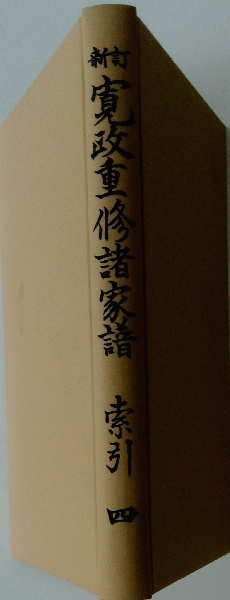 新訂
寛政重修諸家譜
索引
四